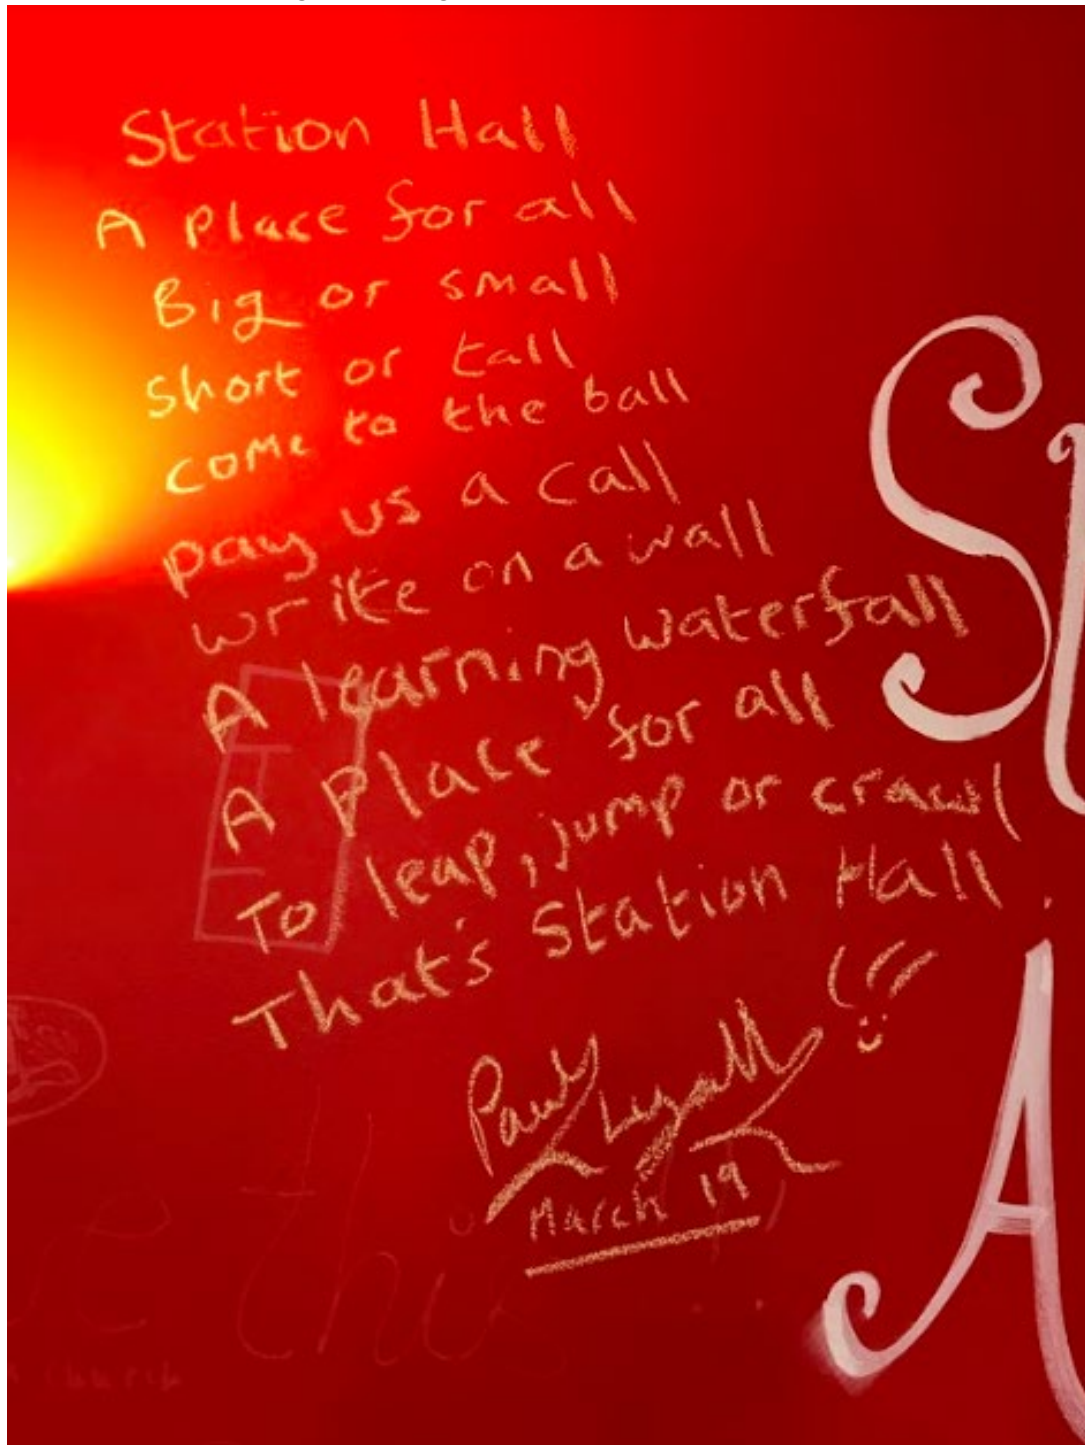 Station Hall
A Place for all
Big or small
short or tall
come to the ball
pay us a call
write on a wall
A learning waterfall
A Place for all
To leap, jump or crawl
That's Station Hall
Paul Lyall
March 19
church